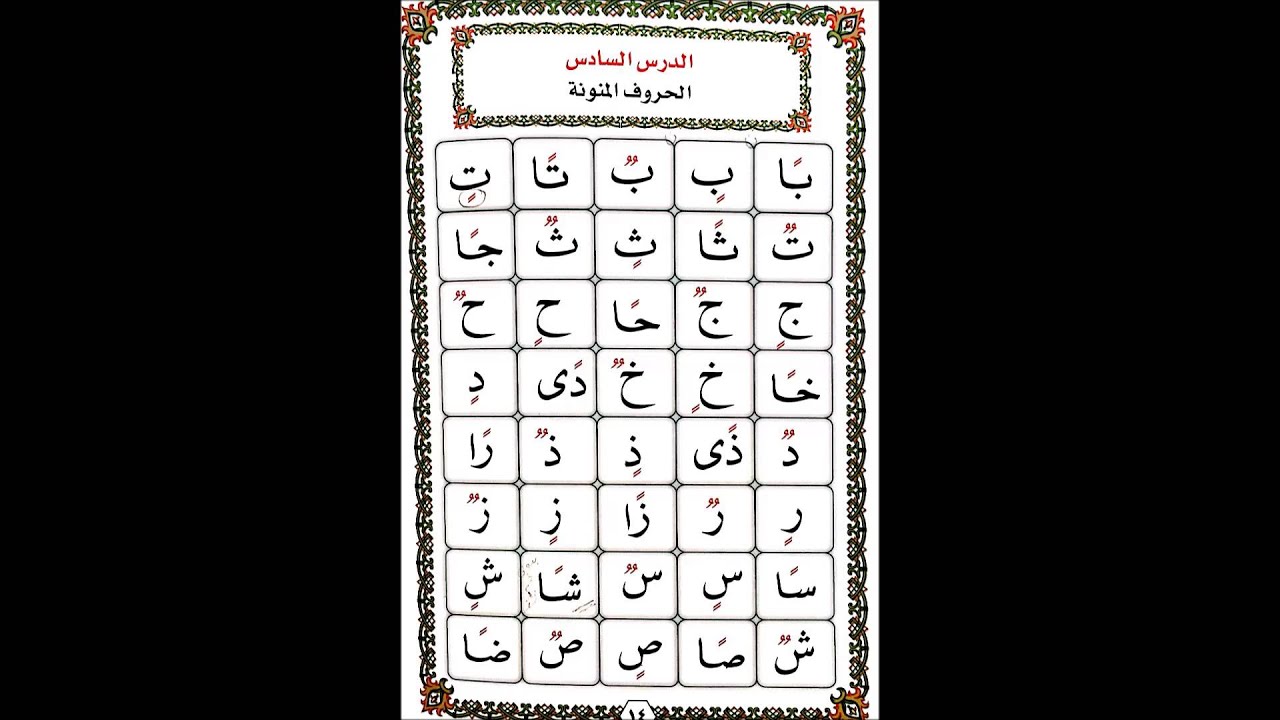 الدرس السادس
الحروف المنونة
بًا بٍ بٌ تًا تٍ
تٌ ثًا ثٍ ثٌ جًا
جٍ جٌ حًا حٍ حٌ
خًا خٍ خٌ دًى دٍ
دٌ ذًى ذٍ ذٌ رًا
رٍ رٌ زًا زٍ زٌ
سًا سٍ سٌ شًا شٍ
شٌ صًا صٍ صٌ ضًا
١٤